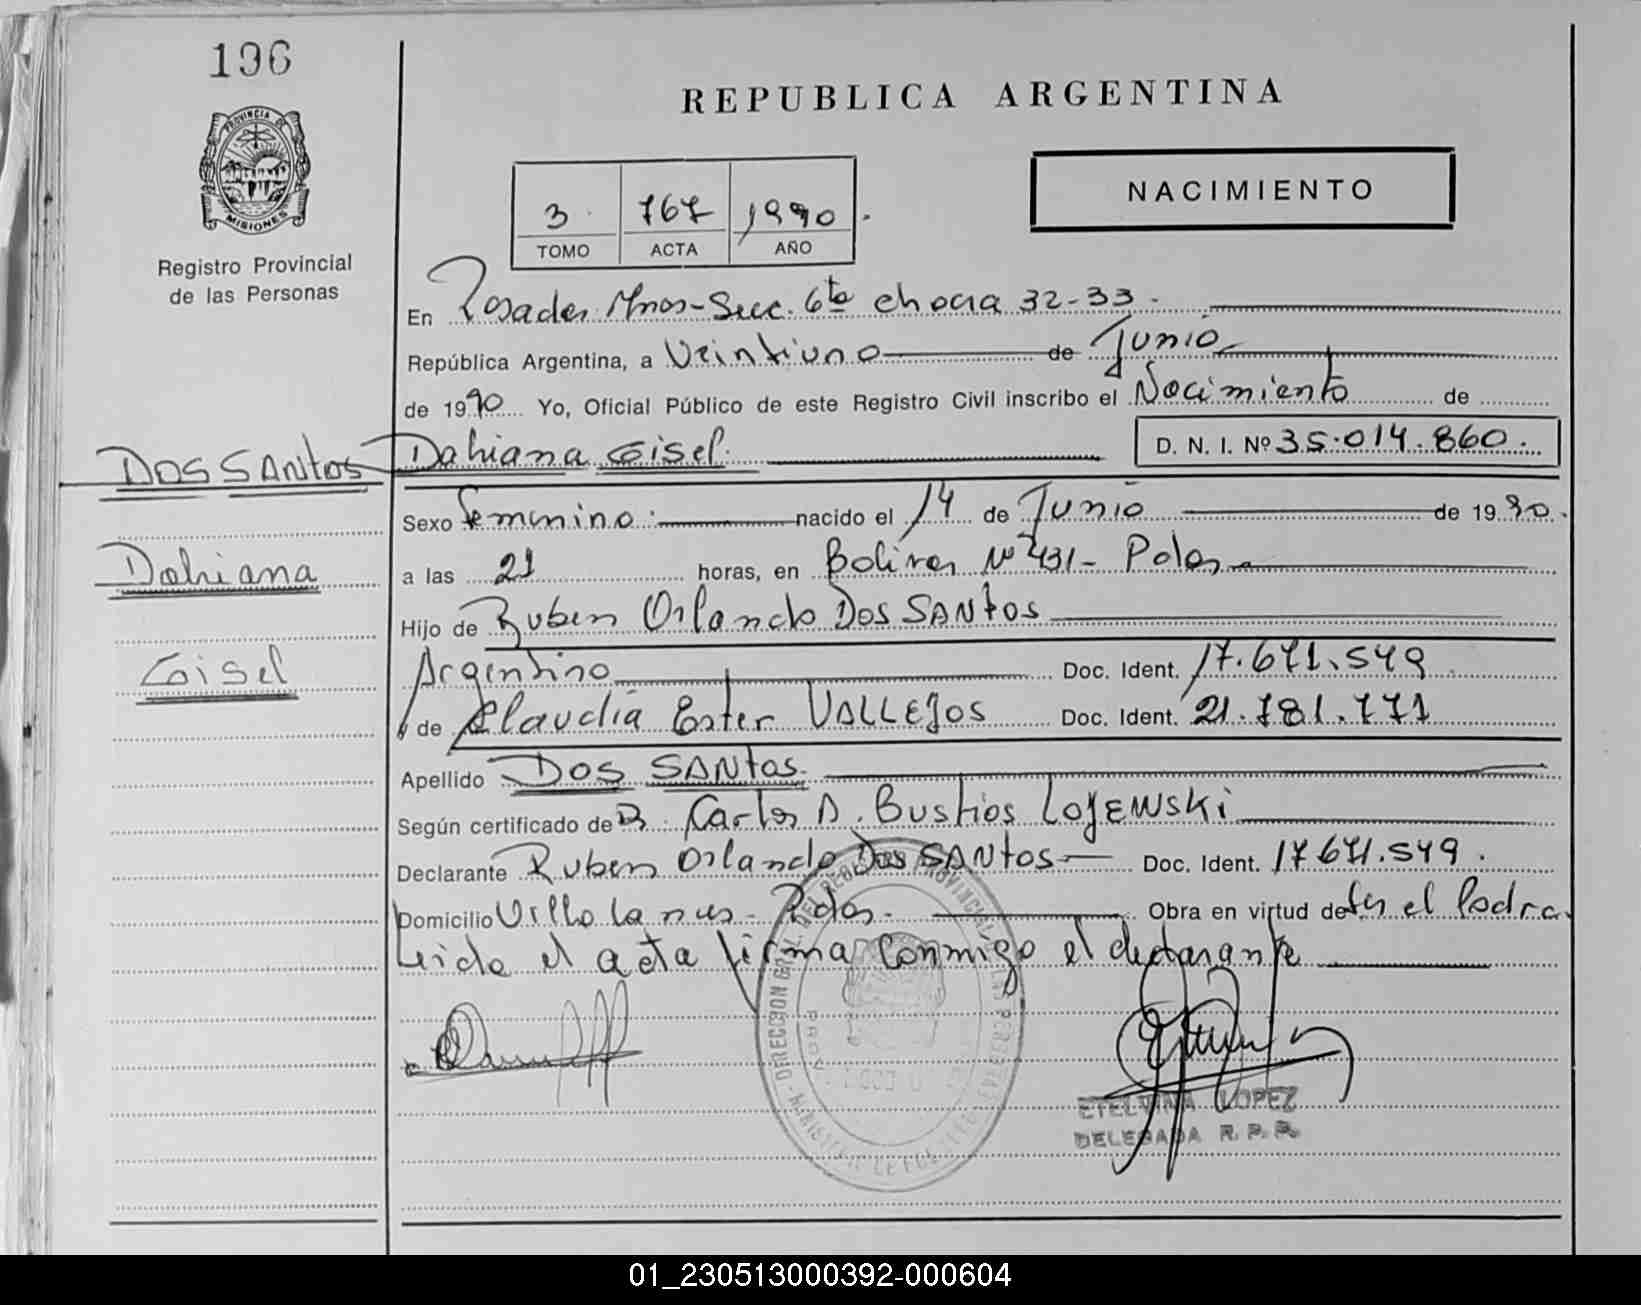 196
PROVINCIA DE
MISIONES
Registro Provincial
de las Personas
REPUBLICA ARGENTINA
NACIMIENTO
3 767 1990
TOMO ACTA AÑO
En Posadas Mnes-Secc. 6ta chacra 32-33.
República Argentina, a Veintiuno de Junio
de 1990 Yo, Oficial Público de este Registro Civil inscribo el Nacimiento de
DOS SANtos Dahiana Gisel. D. N. I. Nº 35.014.860.
Dahiana
Gisel
Sexo Femenino. nacido el 14 de Junio de 1990.
a las 21 horas, en Bolivar Nº 431- Pdas
Hijo de Ruben Orlando Dos SANtos
Argentino Doc. Ident. 17.671.549
y de Claudia Ester VALLEJOS Doc. Ident. 21.781.771
Apellido DOS SANtos.
Según certificado de Dr. Carlos A. Bustios LOJEWSKi
Declarante Ruben Orlando Dos SANtos Doc. Ident. 17.671.549.
Domicilio Villa Lanus - Pdas. Obra en virtud de ser el Padre.
Leida el acta firma conmigo el declarante
ETELVINA LOPEZ
DELEGADA R. P. P.
01_230513000392-000604